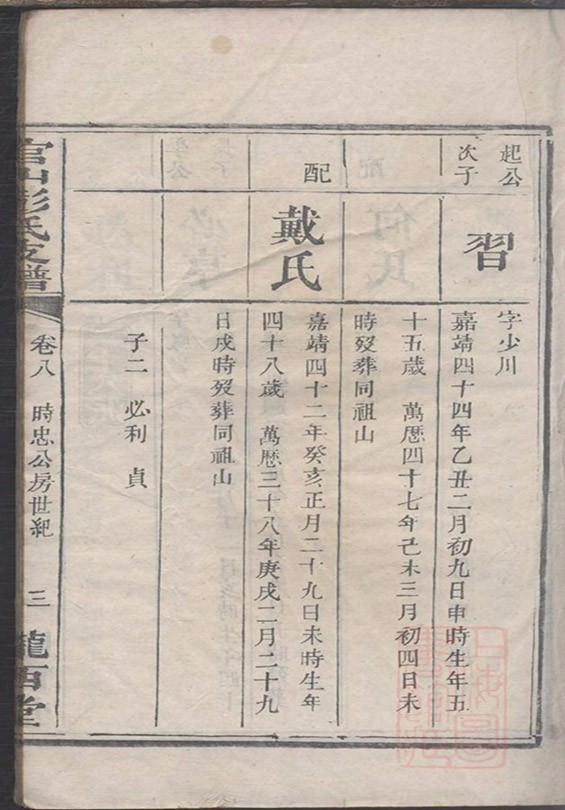 起公
次子
習
字少川
嘉靖四十四年乙丑二月初九日申時生年五
十五歲 萬曆四十七年己未三月初四日未
時歿葬同祖山
配
戴氏
嘉靖四十二年癸亥正月二十九日未時生年
四十八歲 萬曆三十八年庚戌二月二十九
日戌時歿葬同祖山
子二 必利 貞
官山彭氏支譜
卷八 時忠公房世紀
三
隴西堂